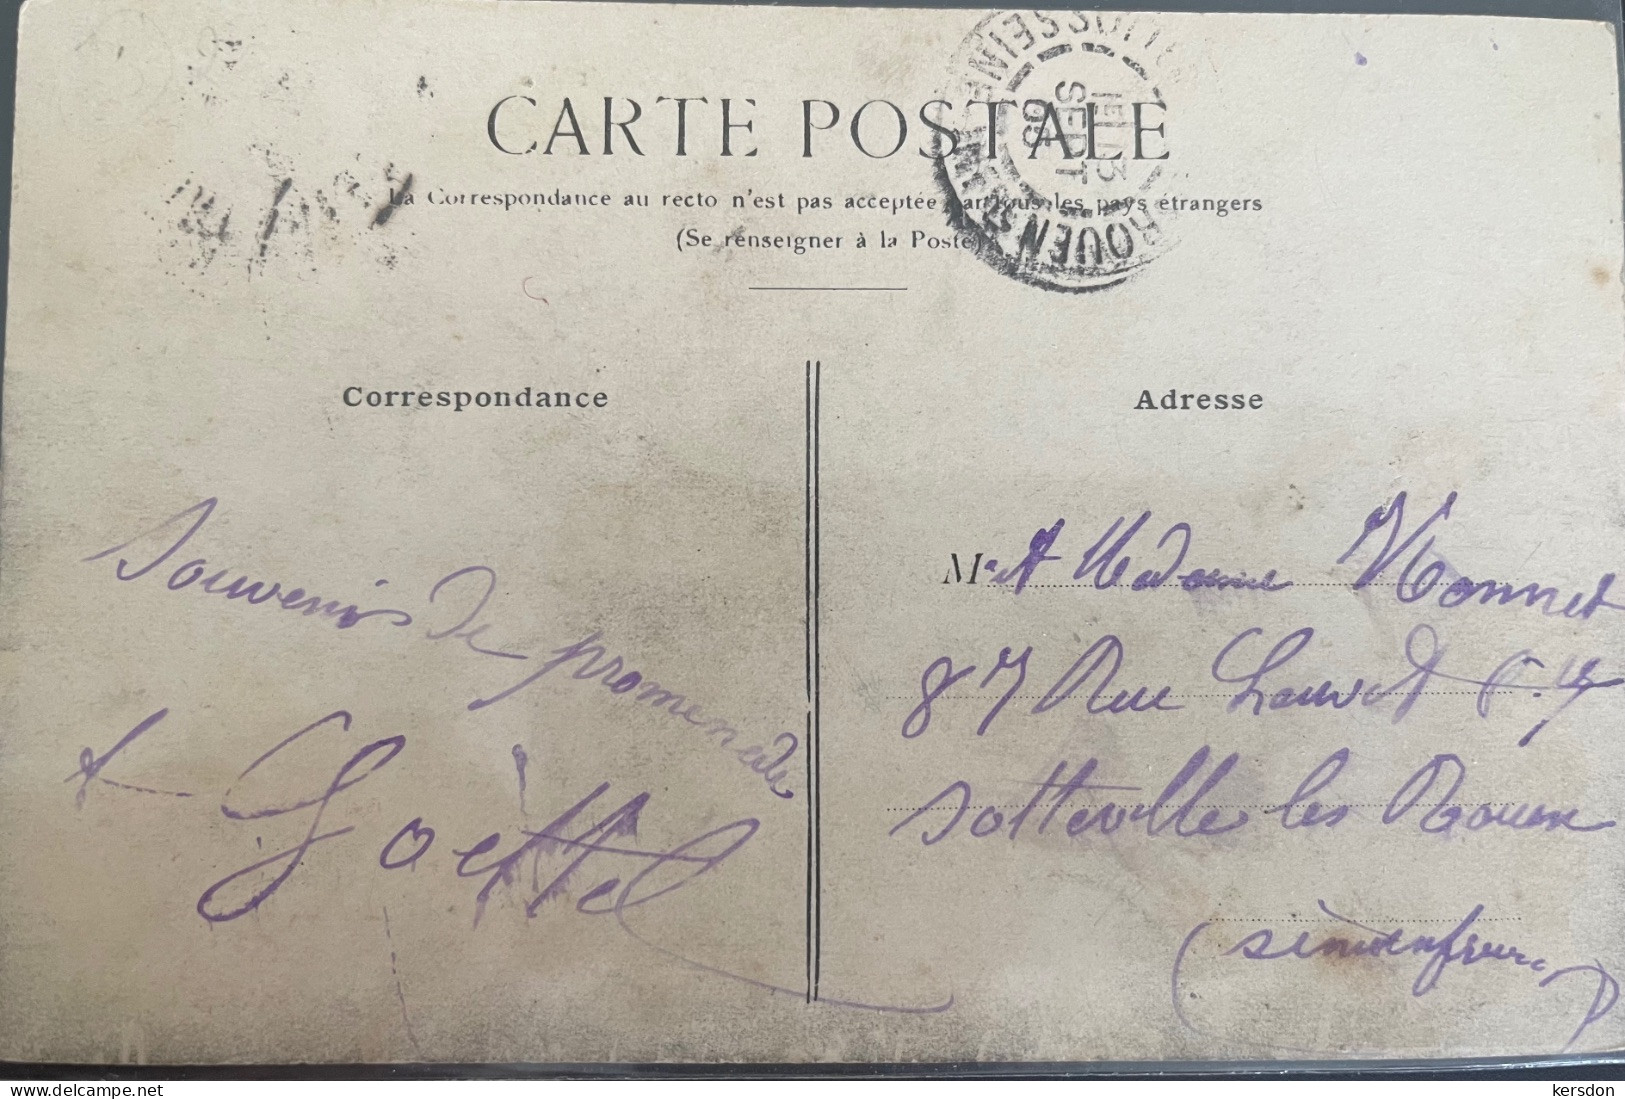 CARTE POSTALE
La Correspondance au recto n'est pas acceptée par tous les pays étrangers
(Se renseigner à la Poste)
SEPT
ROUEN
SEINE
Correspondance
Souvenirs de promenade
Goëttel
Adresse
M. et Madame Monnet
87 Rue
Sotteville les Rouen
www.delcampe.net
kersdon